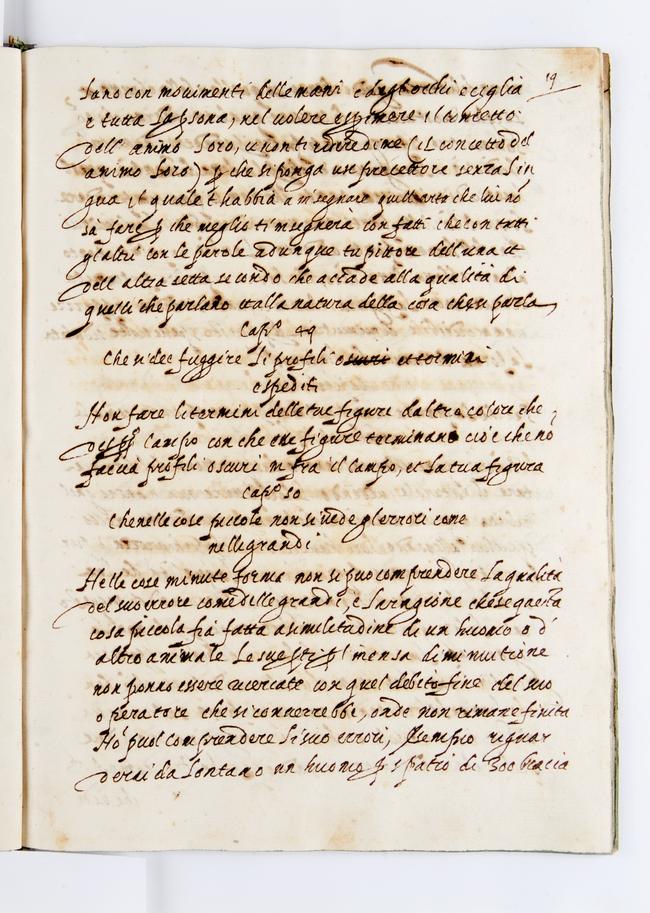 19
lano con movimenti delle mani e degl occhi e ciglia
e tutta la psona, nel volere espimere il concetto
dell' animo loro, e non ti ridredine (il concetto del
animo loro) p che si ponga un precettore senza lin
gua il quale t habbia a insegnare quell' arte che lui nō
sà fare p che meglio t'insegnerà con fatti che con tutti
gl altri con le parole adunque tu pittore dell' una et
dell altra setta secondo che accade alla qualità di
quelli che parlano et alla natura della cosa che si parla
Capo. 49
Che si dee fuggire li profili et termini
espediti
Non fare li termini delle tue figure d altro colore che
Campo con che figure terminano cioè che nō
faccia profili oscuri in fra il campo, et la tua figura
Capo. 50
Che nelle cose piccole non si vede gl errori come
nelle grandi
Nelle cose minute forma non si può comprendere la qualità
del suo errore come delle grandi, e la ragione che se questa
cosa piccola fia fatta a similitudine di un huomo o d'
altro animale le sue p l' mensa diminuitione
non ponno essere ricercate con quel debito fine del suo
operatore che si converrebbe, onde non rimane finita
Nō puol comprendere li suo errori, essempio riguar
derai da lontano un huomo p spatio di 300 bracia